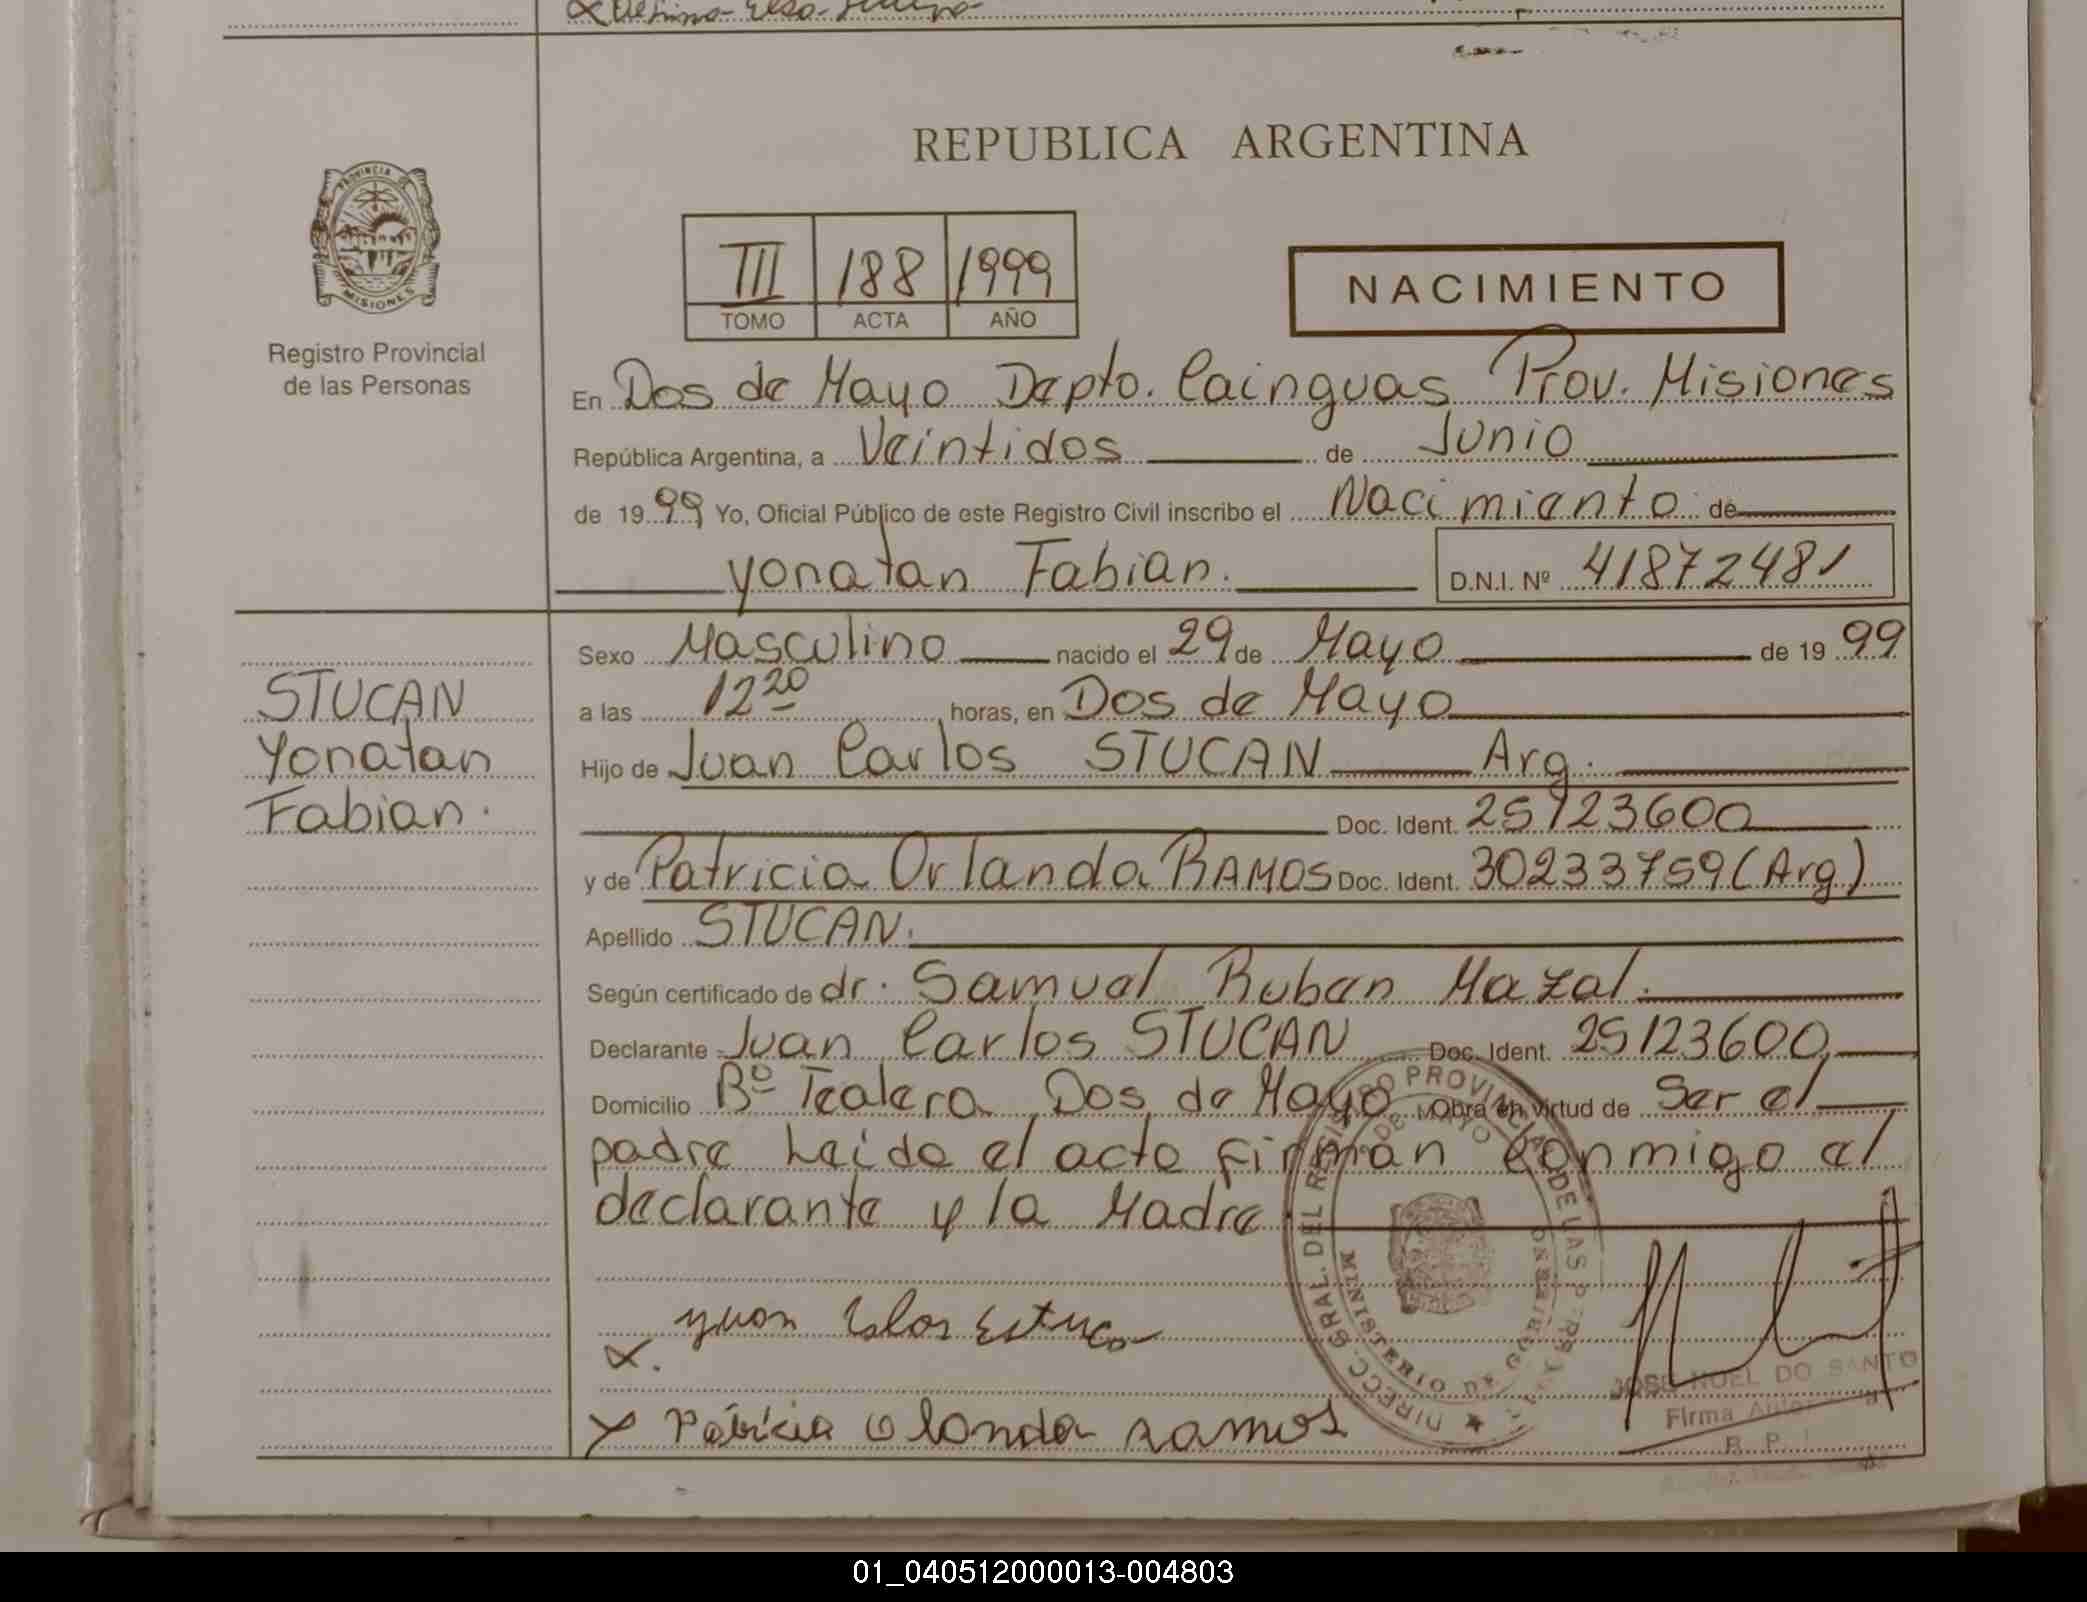 REPUBLICA ARGENTINA
PROVINCIA DE
MISIONES
Registro Provincial
de las Personas
III 188 1999
TOMO ACTA AÑO
NACIMIENTO
En Dos de Mayo Depto. Cainguas Prov. Misiones
República Argentina, a Veintidos de Junio
de 1999 Yo, Oficial Público de este Registro Civil inscribo el Nacimiento de
Yonatan Fabian. D.N.I. Nº 41872481
Sexo Masculino nacido el 29 de Mayo de 1999
STUCAN
Yonatan
Fabian.
a las 12 20 horas, en Dos de Mayo
Hijo de Juan Carlos STUCAN Arg.
Doc. Ident. 25123600
y de Patricia Orlanda RAMOS Doc. Ident. 30233759 (Arg)
Apellido STUCAN.
Según certificado de dr. Samuel Ruben Mazal.
Declarante Juan Carlos STUCAN Doc. Ident. 25123600
Domicilio Bº Tealera Dos de Mayo Obra en virtud de Ser el
padre Leido el acta firman conmigo el
declarante y la Madre
DIRECC. GRAL. DEL REGISTRO PROVINCIAL DE LAS PERSONAS
MINISTERIO DE GOBIERNO
DE MAYO
X. Yuon
X Patricia olanda ramos
JOSE NOEL DO SANTO
Firma
R. P.
01_040512000013-004803